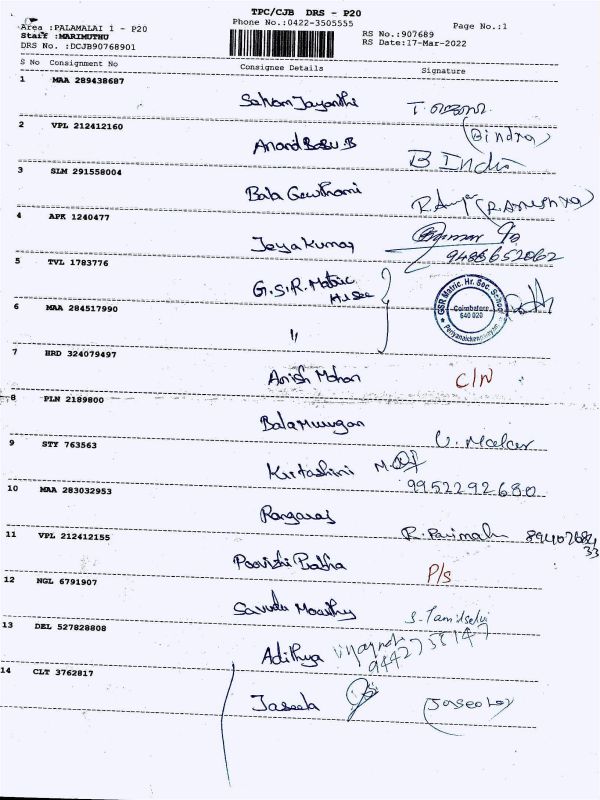 TPC/CJB DRS - P20
Area :PALAMALAI 1 - P20
Phone No.:0422-3505555
Page No.:1
Staff :MARIMUTHU
RS No.:907689
DRS No. :DCJB90768901
RS Date:17-Mar-2022
S No Consignment No Consignee Details Signature
1 MAA 289438687
Jayanthi
2 VPL 212412160
Anand Babu.B B Indra (Bindra)
3 SLM 291558004
Bala Gowthami
4 APK 1240477
Jeyakumar
9488652062
5 TVL 1783776
G.S.R. Matric
H.r.Sec
GSR Matric. Hr. Sec. School
Coimbatore
640 020
6 MAA 284517990
"
7 HRD 324079497
Anish Mohan C/N
8 PLN 2189800
Bala Murugan
9 STY 763563
Kirtashini
9952292680
10 MAA 283032953
Rangaraj
11 VPL 212412155 R. Parimala
Poovizhi Pratha P/S
12 NGL 6791907
Moorthy S. Tamilselvi
13 DEL 527828808
Adithya
14 CLT 3762817
Jaseela